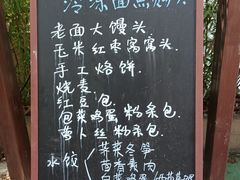 冷冻面点
老面大馒头
玉米红枣窝窝头
手工烙饼
烧麦
红豆包
包菜鸡蛋粉条包
萝卜丝粉条包
水饺 荠菜冬笋
茴香素肉
白菜鸡蛋